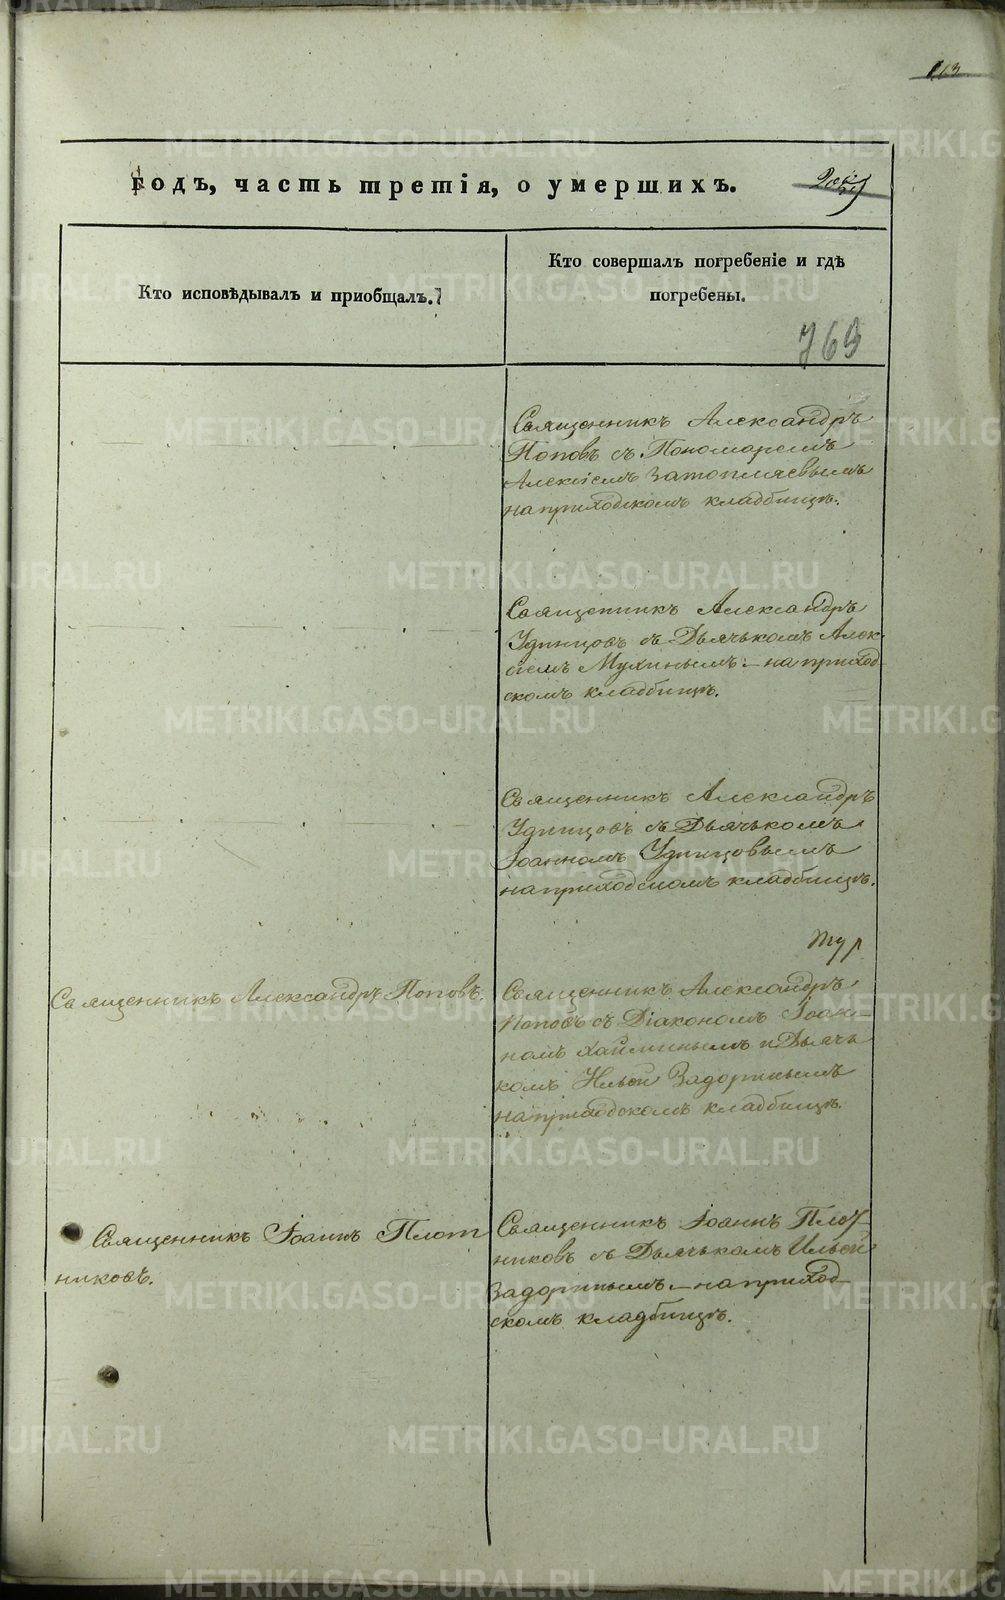 годъ, часть третія, о умершихъ.
Кто исповѣдывалъ и приобщалъ.
Кто совершалъ погребеніе и гдѣ
погребены.
769
Священникъ Александръ
Поповъ съ Пономаремъ
Алексіемъ Затопляевымъ
на приходскомъ кладбищѣ.
Священникъ Александръ
Удинцовъ съ Дьячькомъ Алек-
сіемъ Мухинымъ. – на приход-
скомъ кладбищѣ.
Священникъ Александръ
Удинцовъ съ Дьячькомъ
Іоанномъ Удинцовымъ
на приходскомъ кладбищѣ.
Священникъ Александръ Поповъ.
Священникъ Александръ
Поповъ съ Діакономъ Іоан-
номъ Хайминымъ и Дьячь
комъ Ильей Задоринымъ
на приходскомъ кладбищѣ.
Священникъ Іоаннъ Плот
никовъ.
Священникъ Іоаннъ Плот-
никовъ съ Дьячькомъ Ильей
Задоринымъ. – на приход-
скомъ кладбищѣ.
METRIKI.GASO-URAL.RU